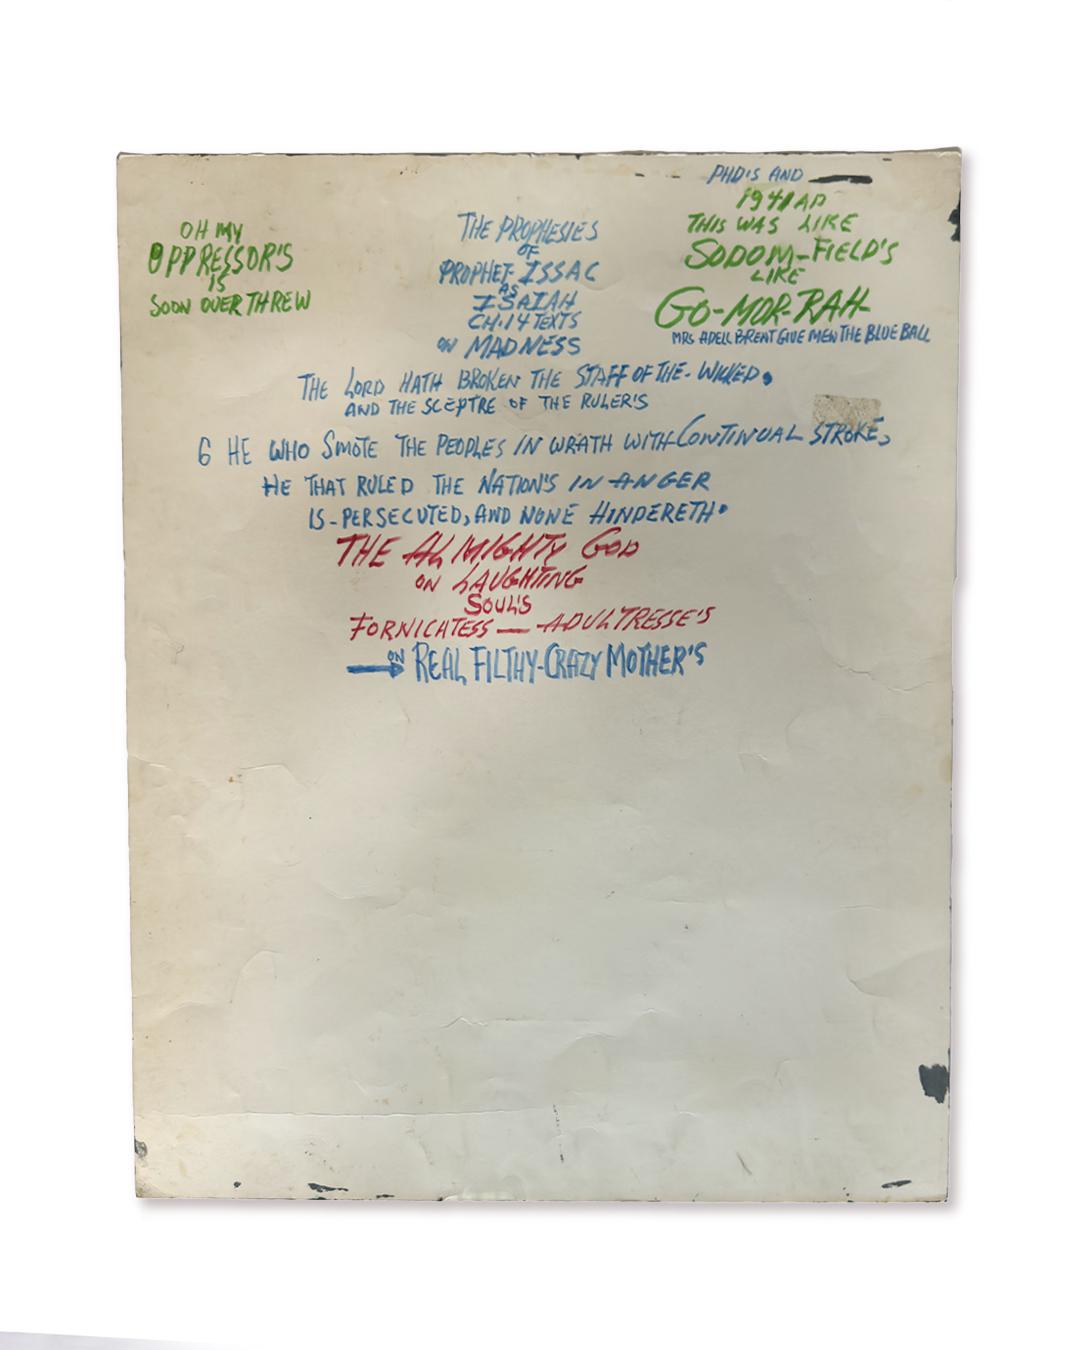 OH MY
OPPRESSOR'S
IS
SOON OVER THREW
THE PROPHESIES
OF
PROPHET-ISSAC
AS
ISAIAH
CH.14 TEXTS
ON MADNESS
PHD'S AND
1941 AD
THIS WAS LIKE
SODOM-FIELD'S
LIKE
GO-MOR-RAH
MRS ADELL BRENT GIVE MEN THE BLUE BALL
THE LORD HATH BROKEN THE STAFF OF THE-WICKED.
AND THE SCEPTRE OF THE RULER'S
6 HE WHO SMOTE THE PEOPLES IN WRATH WITH CONTINUAL STROKE,
HE THAT RULED THE NATION'S IN ANGER
IS-PERSECUTED, AND NONE HINDERETH.
THE ALMIGHTY GOD
ON LAUGHTING
SOUL'S
FORNICHTESS — ADULTRESSE'S
ON REAL FILTHY-CRAZY MOTHER'S